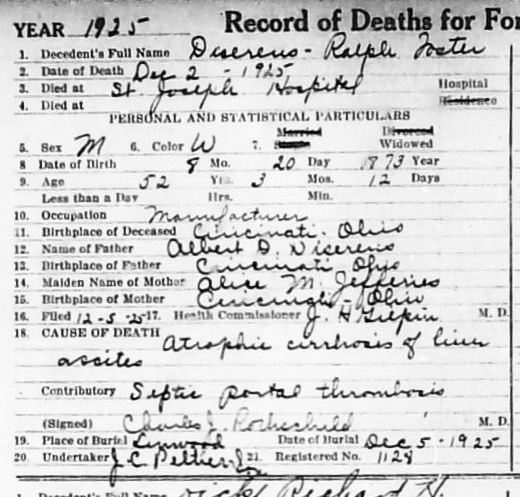 YEAR 1925 Record of Deaths for For
1. Decedent's Full Name Diserens - Ralph Foster
2. Date of Death Dec 2 - 1925
3. Died at St. Joseph Hospital Hospital
4. Died at Residence
PERSONAL AND STATISTICAL PARTICULARS
Married Divorced
5. Sex M 6. Color W 7. Single Widowed
8 Date of Birth 8 Mo. 20 Day 1873 Year
9. Age 52 Yrs. 3 Mos. 12 Days
Less than a Day Hrs. Min.
10. Occupation Manufacturer
11. Birthplace of Deceased Cincinati. Ohio
12. Name of Father Albert D. Diserens
13. Birthplace of Father Cincinati Ohio
14. Maiden Name of Mother Alice M. Jefferies
15. Birthplace of Mother Ohio
16. Filed 12-5-25 17. Health Commissioner J. H. Gilpin M. D.
18. CAUSE OF DEATH Atrophic cirrhosis of liver
ascites
Contributory Septic portal thrombosis
(Signed) Charles J. Rothschild M. D.
19. Place of Burial Linwood Date of Burial Dec 5 - 1925
20. Undertaker J. C. Peltier & Son 21. Registered No. 1128
1. Decedent's Full Name Richard H.